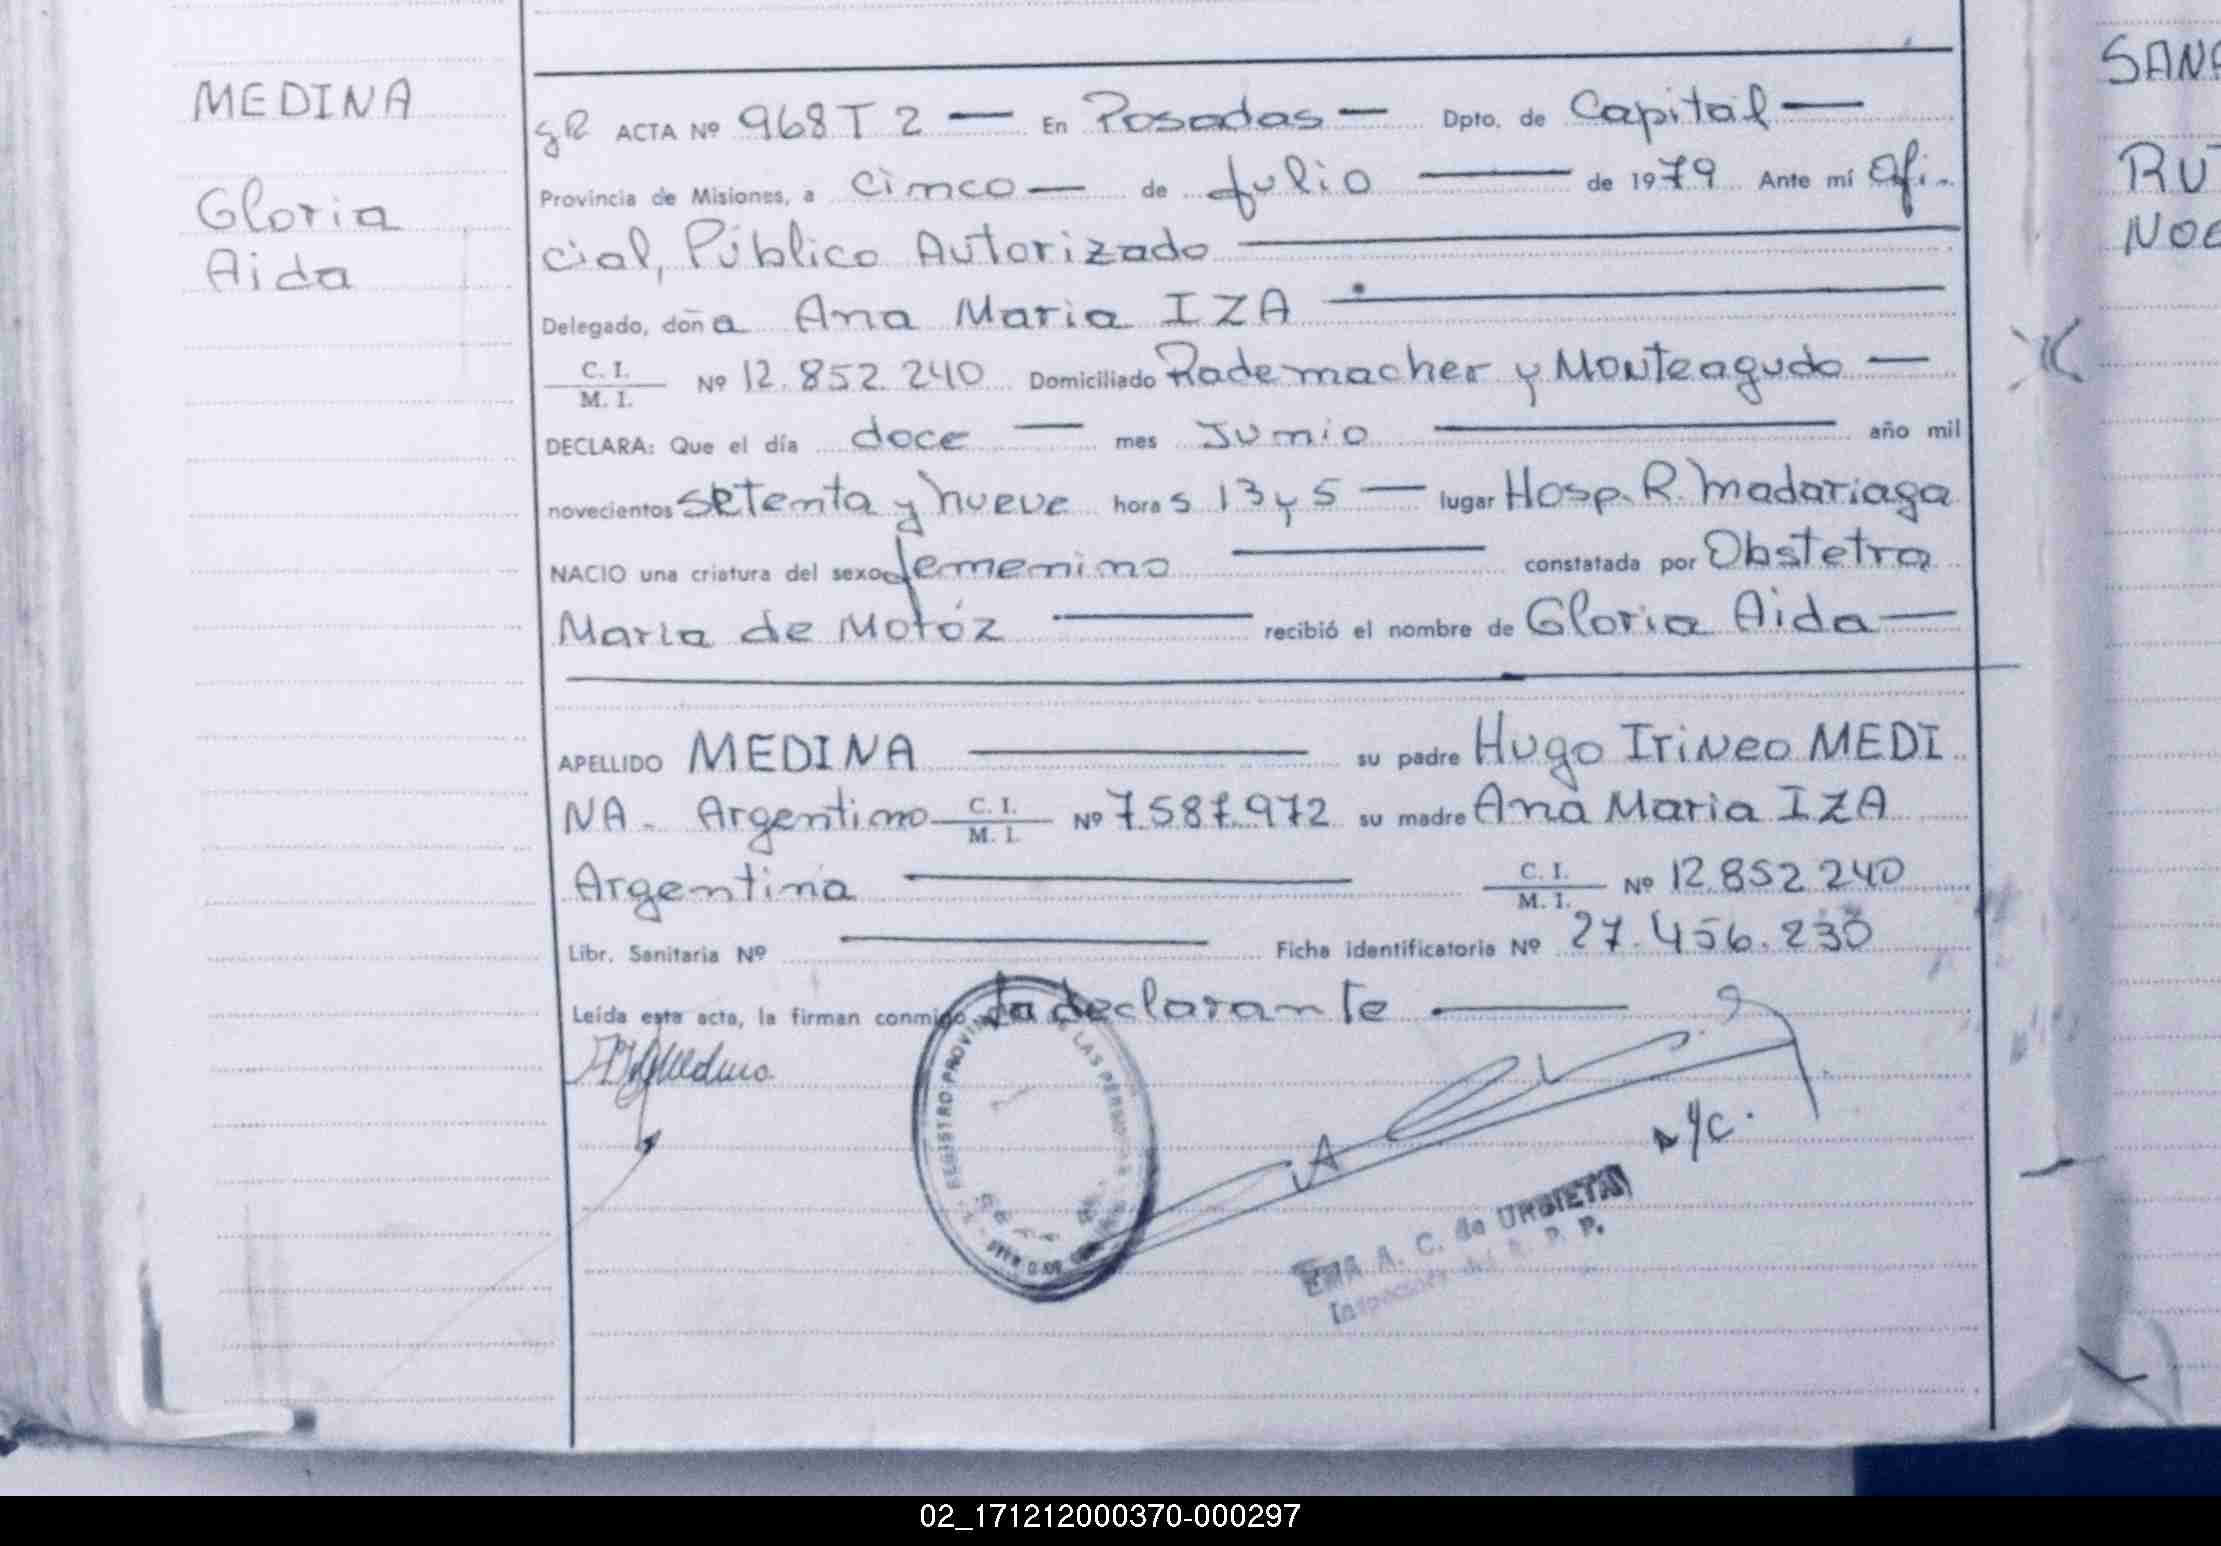 MEDINA
Gloria
Aida
gR ACTA Nº 968 T 2 — En Posadas — Dpto. de Capital —
Provincia de Misiones, a cinco — de Julio — de 1979 Ante mí Ofi-
cial, Público Autorizado —
Delegado, doña Ana Maria IZA —
C. I. / M. I. Nº 12.852.240 Domiciliado Rademacher y Monteagudo —
DECLARA: Que el día doce — mes Junio — año mil
novecientos setenta y nueve horas 13 y 5 — lugar Hosp. R. Madariaga
NACIO una criatura del sexo femenino — constatada por Obstetra
Maria de Motóz — recibió el nombre de Gloria Aida —
APELLIDO MEDINA — su padre Hugo Irineo MEDI
NA - Argentino C. I. / M. I. Nº 7.587.972 su madre Ana Maria IZA
Argentina — C. I. / M. I. Nº 12.852.240
Libr. Sanitaria Nº — Ficha identificatoria Nº 27.456.230
Leída esta acta, la firman conmigo la declarante —
REGISTRO PROVINCIAL DE LAS PERSONAS
A. C. de URBIETA
SANA
RUT
NOE
02_171212000370-000297